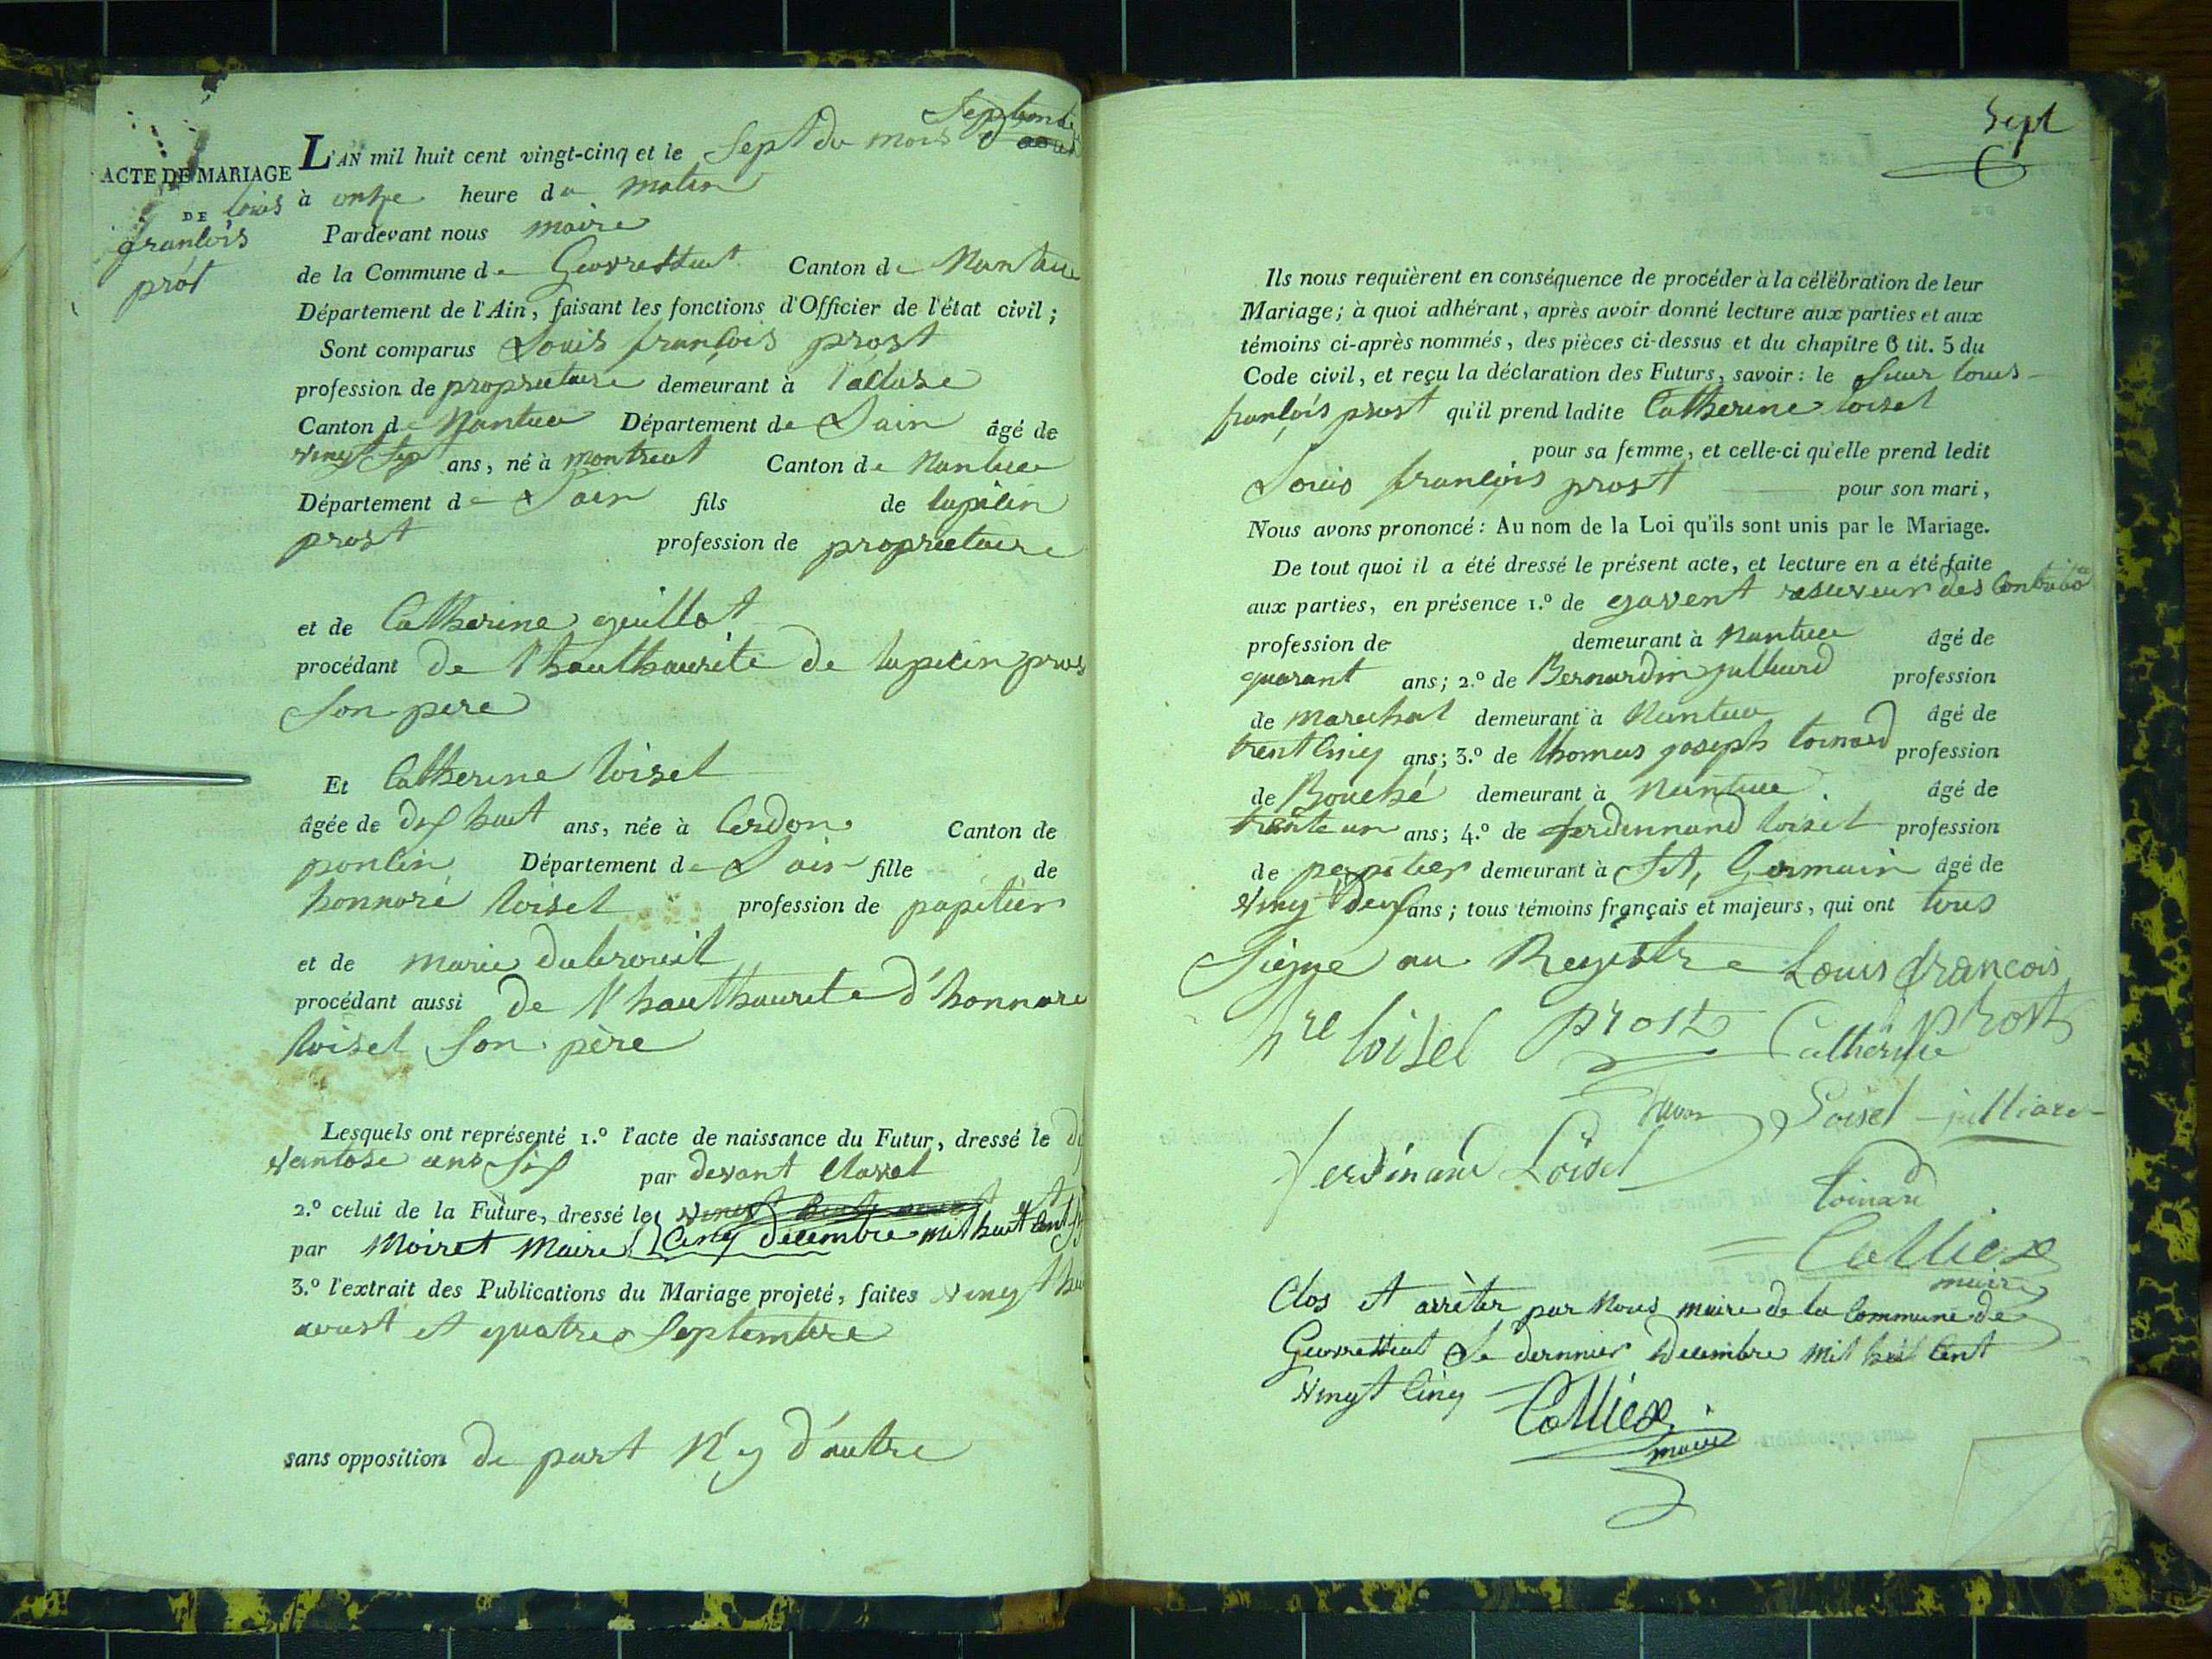 ACTE DE MARIAGE
DE louis
françois
prôt
Septembre
L'AN mil huit cent vingt-cinq et le Sept du mois d'aout
à onze heure du matin
Pardevant nous maire
de la Commune de Geovressiat Canton de Nantua
Département de l'Ain, faisant les fonctions d'Officier de l'état civil ;
Sont comparus Louis françois prost
profession de proprietaire demeurant à l'acluse
Canton de Nantua Département de Lain âgé de
vingt sep ans, né à montreat Canton de Nantua
Département de Lain fils de lupicin
prost profession de proprietaire
et de Catherine guillot
procédant de l'hauthaurité de lupicin pros
Son pere
Et Catherine loisel
âgée de dix huit ans, née à Cerdon Canton de
poncin Département de Lain fille de
honnoré loisel profession de papetier
et de marie
procédant aussi de l'hauthaurite d'honnore
loisel Son père
Lesquels ont représenté 1.º l'acte de naissance du Futur, dressé le
ventose ans Six par devant Clavel
2.º celui de la Future, dressé le vingt
par Moiret Maire Cinq decembre mil huit Cent
3.º l'extrait des Publications du Mariage projeté, faites vingt
aoust et quatre Septembre
sans opposition de part N'y d'autre
Sept
Ils nous requièrent en conséquence de procéder à la célébration de leur
Mariage ; à quoi adhérant, après avoir donné lecture aux parties et aux
témoins ci-après nommés, des pièces ci-dessus et du chapitre 6 tit. 5 du
Code civil, et reçu la déclaration des Futurs, savoir : le Sieur louis
françois prost qu'il prend ladite Catherine loisel
pour sa femme, et celle-ci qu'elle prend ledit
Louis françois prost pour son mari,
Nous avons prononcé : Au nom de la Loi qu'ils sont unis par le Mariage.
De tout quoi il a été dressé le présent acte, et lecture en a été faite
aux parties, en présence 1.º de gavent reseveur des Contributo
profession de demeurant à Nantua âgé de
quarant ans ; 2.º de Bernardin julliard profession
de marechal demeurant à Nantua âgé de
trent Cinq ans ; 3.º de thomas joseph toinard profession
de Bouché demeurant à Nantua âgé de
trante un ans ; 4.º de ferdinnand loisel profession
de papetier demeurant à St, Germain âgé de
Vingt deux ans ; tous témoins français et majeurs, qui ont tous
Signe au Registre Louis francois
hre loisel prost Catherine prost
Loisel julliard
ferdinand Loisel
toinard
Colliex
maire
Clos et arrèter par Nous maire de la Commune de
Geovressiat Le dernnier Decembre mil huit Cent
vingt Cinq Colliex
maire